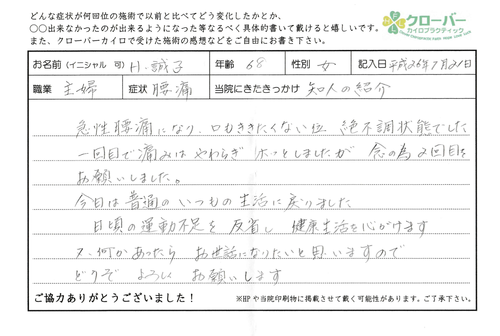 どんな症状が何回位の施術で以前と比べてどう変化したかとか、
○○出来なかったのが出来るようになった等なるべく具体的書いて戴けると嬉しいです。
また、クローバーカイロで受けた施術の感想などをご自由にお書き下さい。
クローバー
カイロプラクティック
お名前（イニシャル 可） H.誠子 年齢 68 性別 女 記入日 平成26年7月21日
職業 主婦 症状 腰痛 当院にきたきっかけ 知人の紹介
急性腰痛になり、口もききたくない位 絶不調状態でした
一回目で痛みはやわらぎ ホッとしましたが 念の為2回目を
お願いしました。
今日は普通のいつもの生活に戻りました
日頃の運動不足を反省し 健康生活を心がけます
又、何かあったら お世話になりたいと思いますので
どうぞ よろしく お願いします
ご協力ありがとうございました！ ※HPや当院印刷物に掲載させて戴く可能性があります。ご了承下さい。